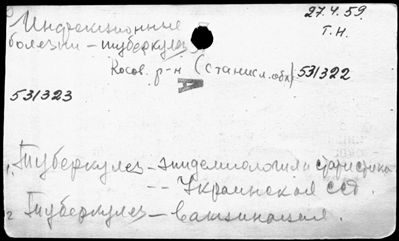 Инфекционные
27.4.59.
болезни – туберкулез
Т.Н.
Косов. р-н (Станисл. обл) 531322
531323
1, Туберкулез – эпидемиология и статистика
-- Украинская ССР.
2 Туберкулез – вакцинация.